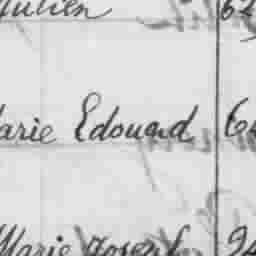 Julien 62
Marie Edouard 6
Marie Joseph 9